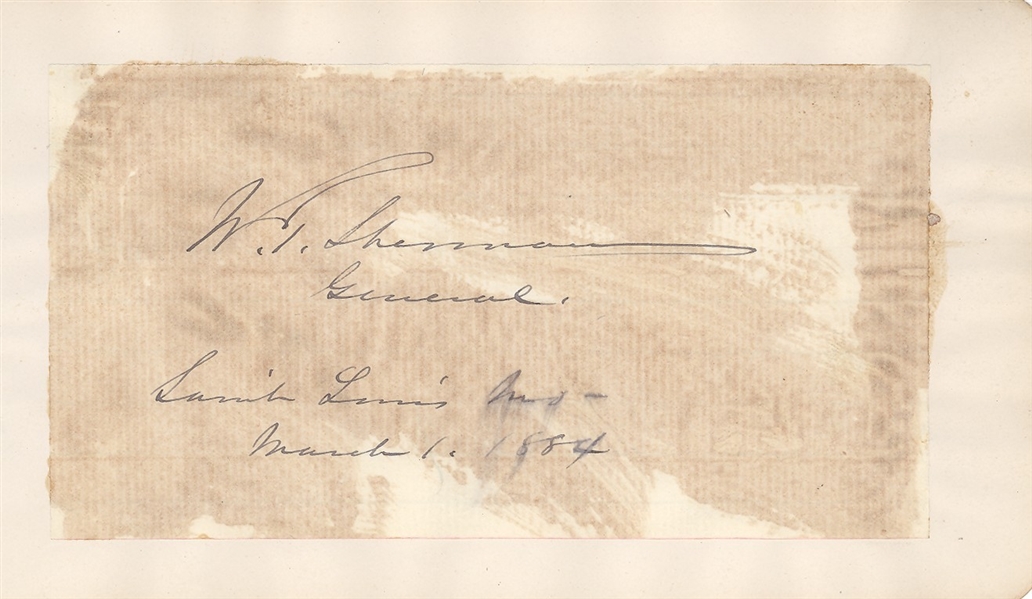 W. T. Sherman
General.
Saint Louis Mo -
March 1. 1884